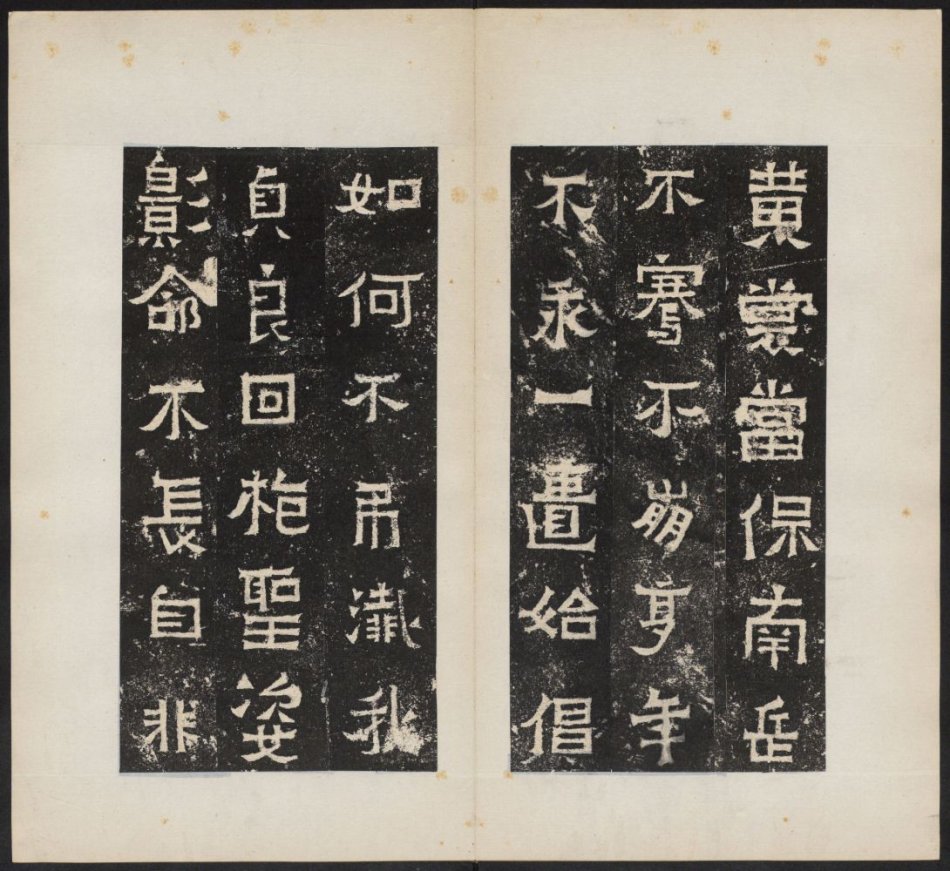 黄裳當保南岳
不騫不崩享年
不永一匱始倡
如何不弔殲我
貞良回抱聖姿
影命不長自非